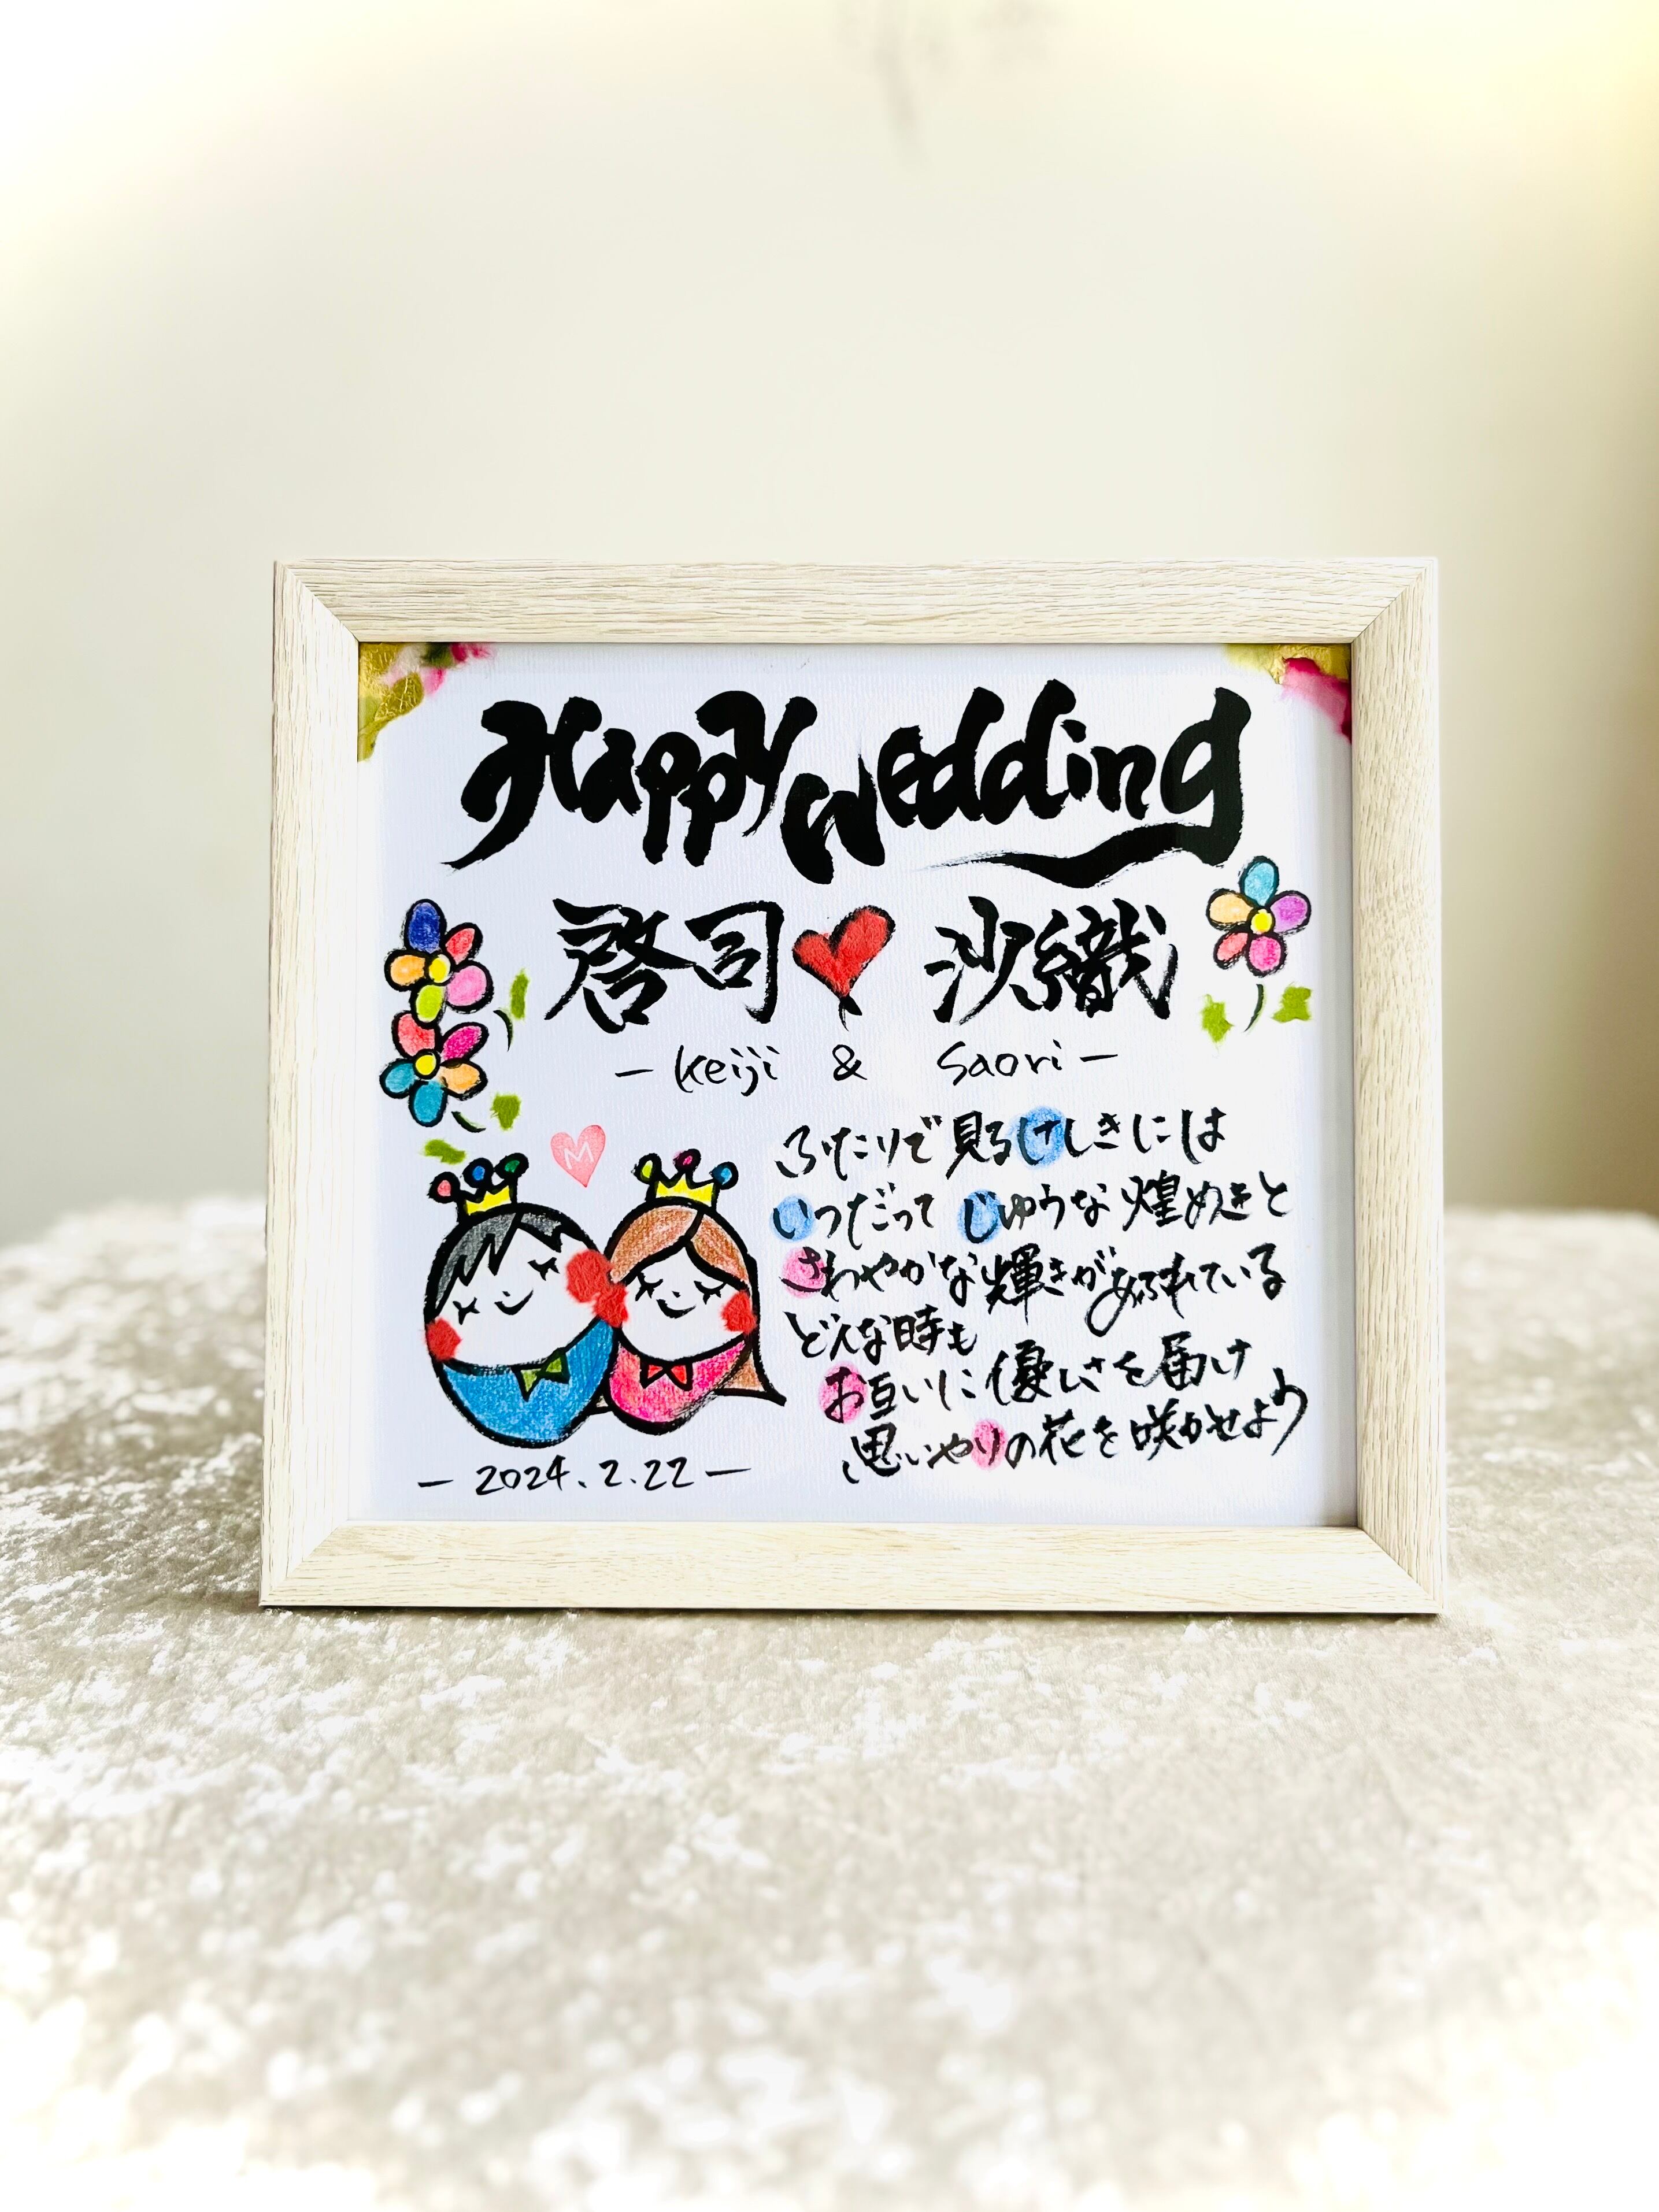 Happy Wedding
啓司 沙織
- Keiji & Saori -
M
ふたりで見るけしきには
いつだって じゆうな煌めきと
さわやかな輝きがあふれている
どんな時も
お互いに優しさを届け
思いやりの花を咲かせよう
- 2024.2.22 -